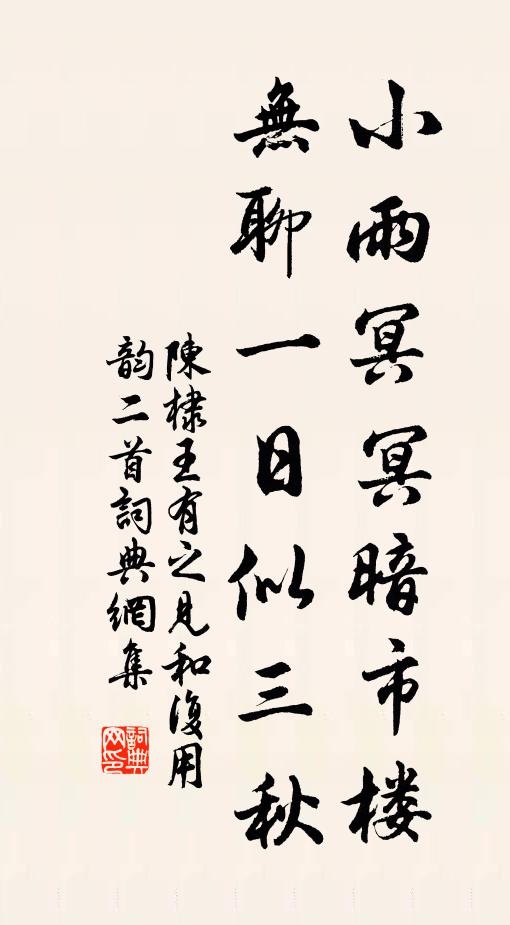 小雨冥冥暗市楼
無聊一日似三秋
陳棣王有之見和復用
韵二首詞典網集
詞典网印